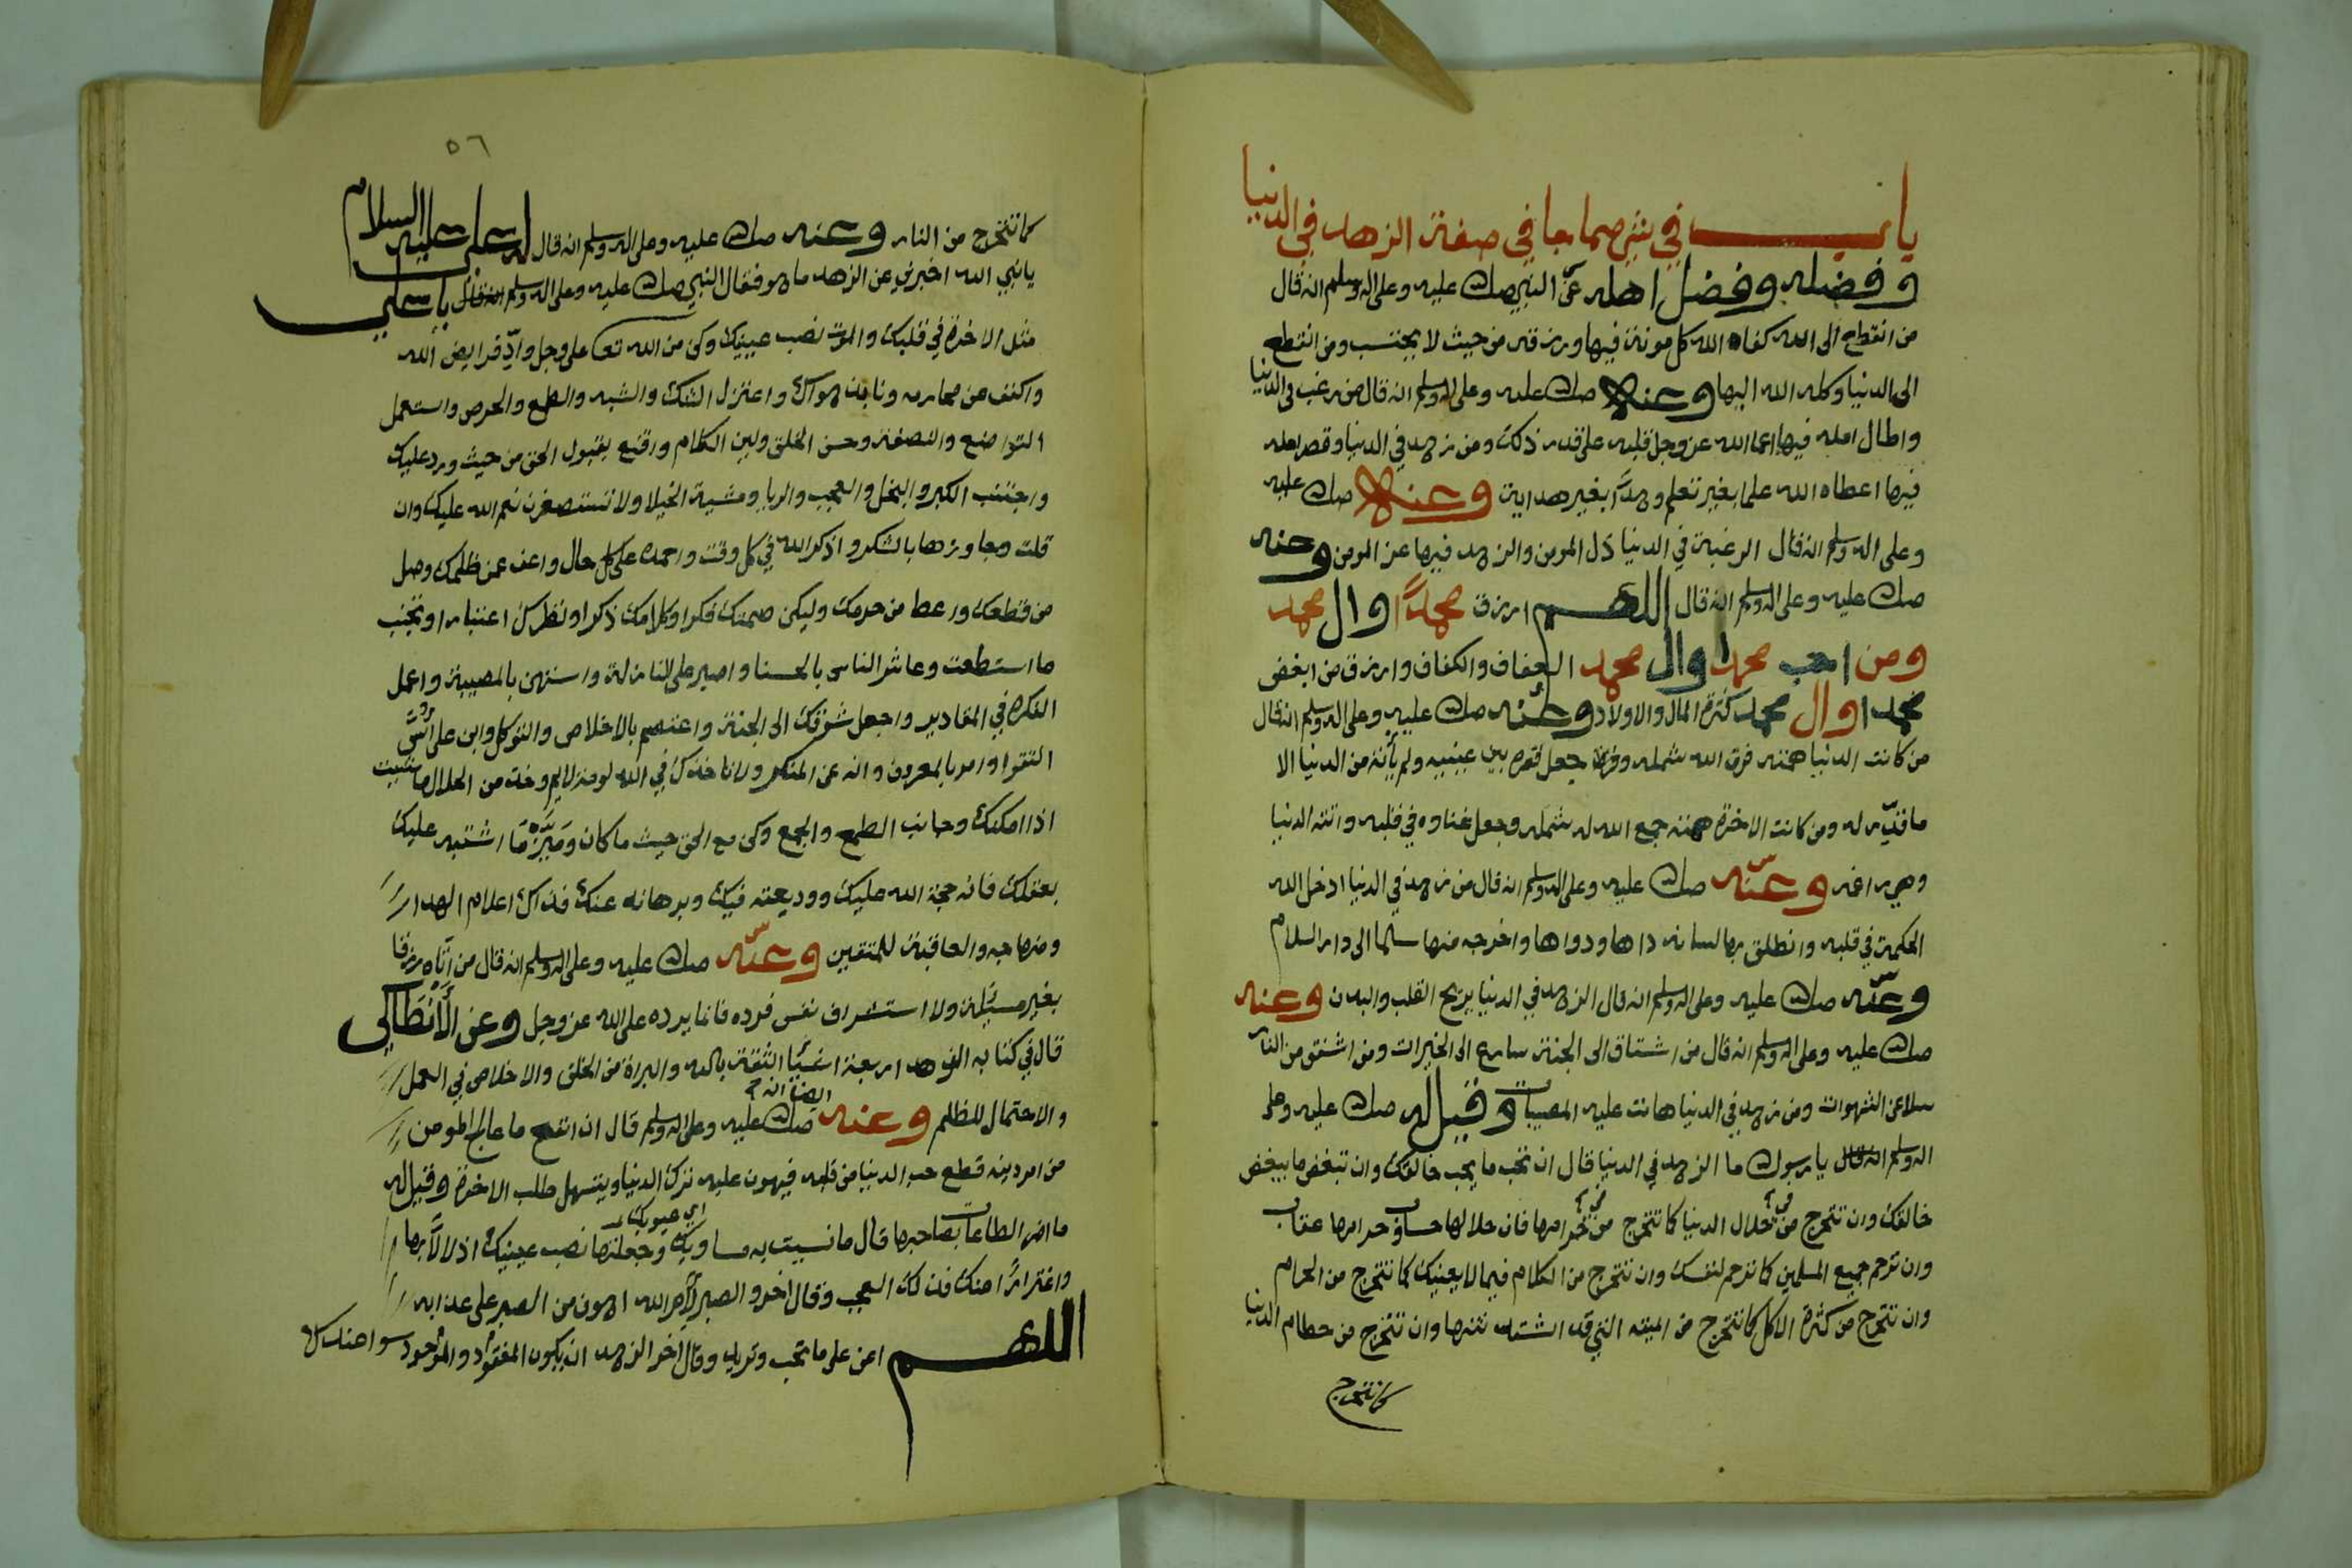 باب في شي مما جا في صفة الزهد في الدنيا
وفضله وفضل اهله عن النبي صلى الله عليه وعلى اله وسلم انه قال
من انقطع الى الله كفاه الله كل مونة فيها ورزقه من حيث لا يحتسب ومن انقطع
الى الدنيا وكله الله اليها وعنه صلى الله عليه وعلى اله وسلم انه قال من رغب في الدنيا
واطال امله فيها اعما الله عز وجل قلبه على قدر ذلك ومن زهد في الدنيا وقصر امله
فيها اعطاه الله علما بغير تعلم وهدًا بغير هداية وعنه صلى الله عليه
وعلى اله وسلم انه قال الرغبة في الدنيا ذل المومن والزهد فيها عز المومن وعنه
صلى الله عليه وعلى اله وسلم انه قال اللهم ارزق محمدًا وال محمد
ومن احب محمدا وال محمد العفاف والكفاف وارزق من ابغض
محمدا وال محمد كثرة المال والاولاد وعنه صلى الله عليه وعلى اله وسلم انه قال
من كانت الدنيا همته فرق الله شمله وجعل فقره بين عينيه ولم يأته من الدنيا الا
ما قدّر له ومن كانت الاخرة همته جمع الله له شمله وجعل غناوه في قلبه واتته الدنيا
وهي راغمه وعنه صلى الله عليه وعلى اله وسلم انه قال من زهد في الدنيا ادخل الله
الحكمة في قلبه وانطلق بها لسانه داها ودواها واخرجه منها سلما الى دار السلام
وعنه صلى الله عليه وعلى اله وسلم انه قال الزهد في الدنيا يريح القلب والبدن وعنه
صلى الله عليه وعلى اله وسلم انه قال من اشتاق الى الجنة سارع الى الخيرات ومن اشفق من النار
سلا عن الشهوات ومن زهد في الدنيا هانت عليه المصيبات وقيل له صلى الله عليه وعلى
اله وسلم انه قال يا رسول الله ما الزهد في الدنيا قال ان تحب ما يحب خالقك وان تبغض ما يبغض
خالقك وان تتحرج من حلال الدنيا كما تتحرج من حرامها فان حلالها حساب وحرامها عقاب
وان ترحم جميع المسلمين كما ترحم لنفسك وان تتحرج من الكلام فيما لا يعنيك كما تتحرج من الحرام
وان تتحرج من كثرة الاكل كما تتحرج من الميته التي قد اشتد نتنها وان تتحرج من حطام الدنيا
كما تتحرج
٥٦
كما تتحرج من النار وعنه صلى الله عليه وعلى اله وسلم انه قال له علي عليه السلام
يا نبي الله اخبرني عن الزهد ما هو فقال النبي صلى الله عليه وعلى اله وسلم انه قال يا علي
مثل الاخرة في قلبك والموت نصب عينيك وكن من الله تعالى على وجل وأدّ فرايض الله
واكفف عن محارمه ونابذ هواك واعتزل الشك والشبه والطمع والحرص واستعمل
التواضع والنصفة وحسن الخلق ولين الكلام واقنع بقبول الحق من حيث ورد عليك
واجتنب الكبر والبخل والعجب والريا ومشية الخيلا ولا تستصغرن نعم الله عليك وان
قلت وجاورها بالشكر واذكر الله في كل وقت واحمده على كل حال واعف عمن ظلمك وصل
من قطعك واعط من حرمك وليكن صمتك فكرا وكلامك ذكرا ونظرك اعتبارا وتجنب
ما استطعت وعاشر الناس بالحسنا واصبر على النازلة واستهن بالمصيبة واعمل
الفكرة في المقادير واجعل شوقك الى الجنة واعتصم بالاخلاص والتوكل وابن على أسّ
التقوا وامر بالمعروف وانه عن المنكر ولا تاخذك في الله لومة لايم وخذ من الحلال ما شيت
اذا امكنك وجانب الطمع والجمع وكن مع الحق حيث ما كان وميّز ما اشتبه عليك
بعقلك فانه حجة الله عليك ووديعته فيك وبرهانه عندك فذاك اعلام الهدا
ومنهاجه والعاقبة للمتقين وعنه صلى الله عليه وعلى اله وسلم انه قال من أتاه رزقا
بغير مسئلة ولا استشراف نفس فرده فانما يرده على الله عز وجل وعن الأنطاكي
قال في كتابه الزهد اربعة اشيا الثقة بالله والبراة من الخلق والاخلاص في العمل
والاحتمال للظلم وعنه صلى الله عليه وعلى اله وسلم ايضا انه قال ان انفع ما عالج المومن
من امر دينه قطع حب الدنيا من قلبه فيهون عليه ترك الدنيا ويتسهل طلب الاخرة وقيل له
ما اضر الطاعات بصاحبها قال ما نسيت به مساويك اي عيوبك وجعلتها نصب عينيك اذلالا بها
واغترارًا منك فذلك العجب وقال اخر والصبر لأمر الله اهون من الصبر على عذابه
اللهم اعن على ما تحب وتريد وقال اخر الزهد ان يكون المفقود والموجود سوا عندك